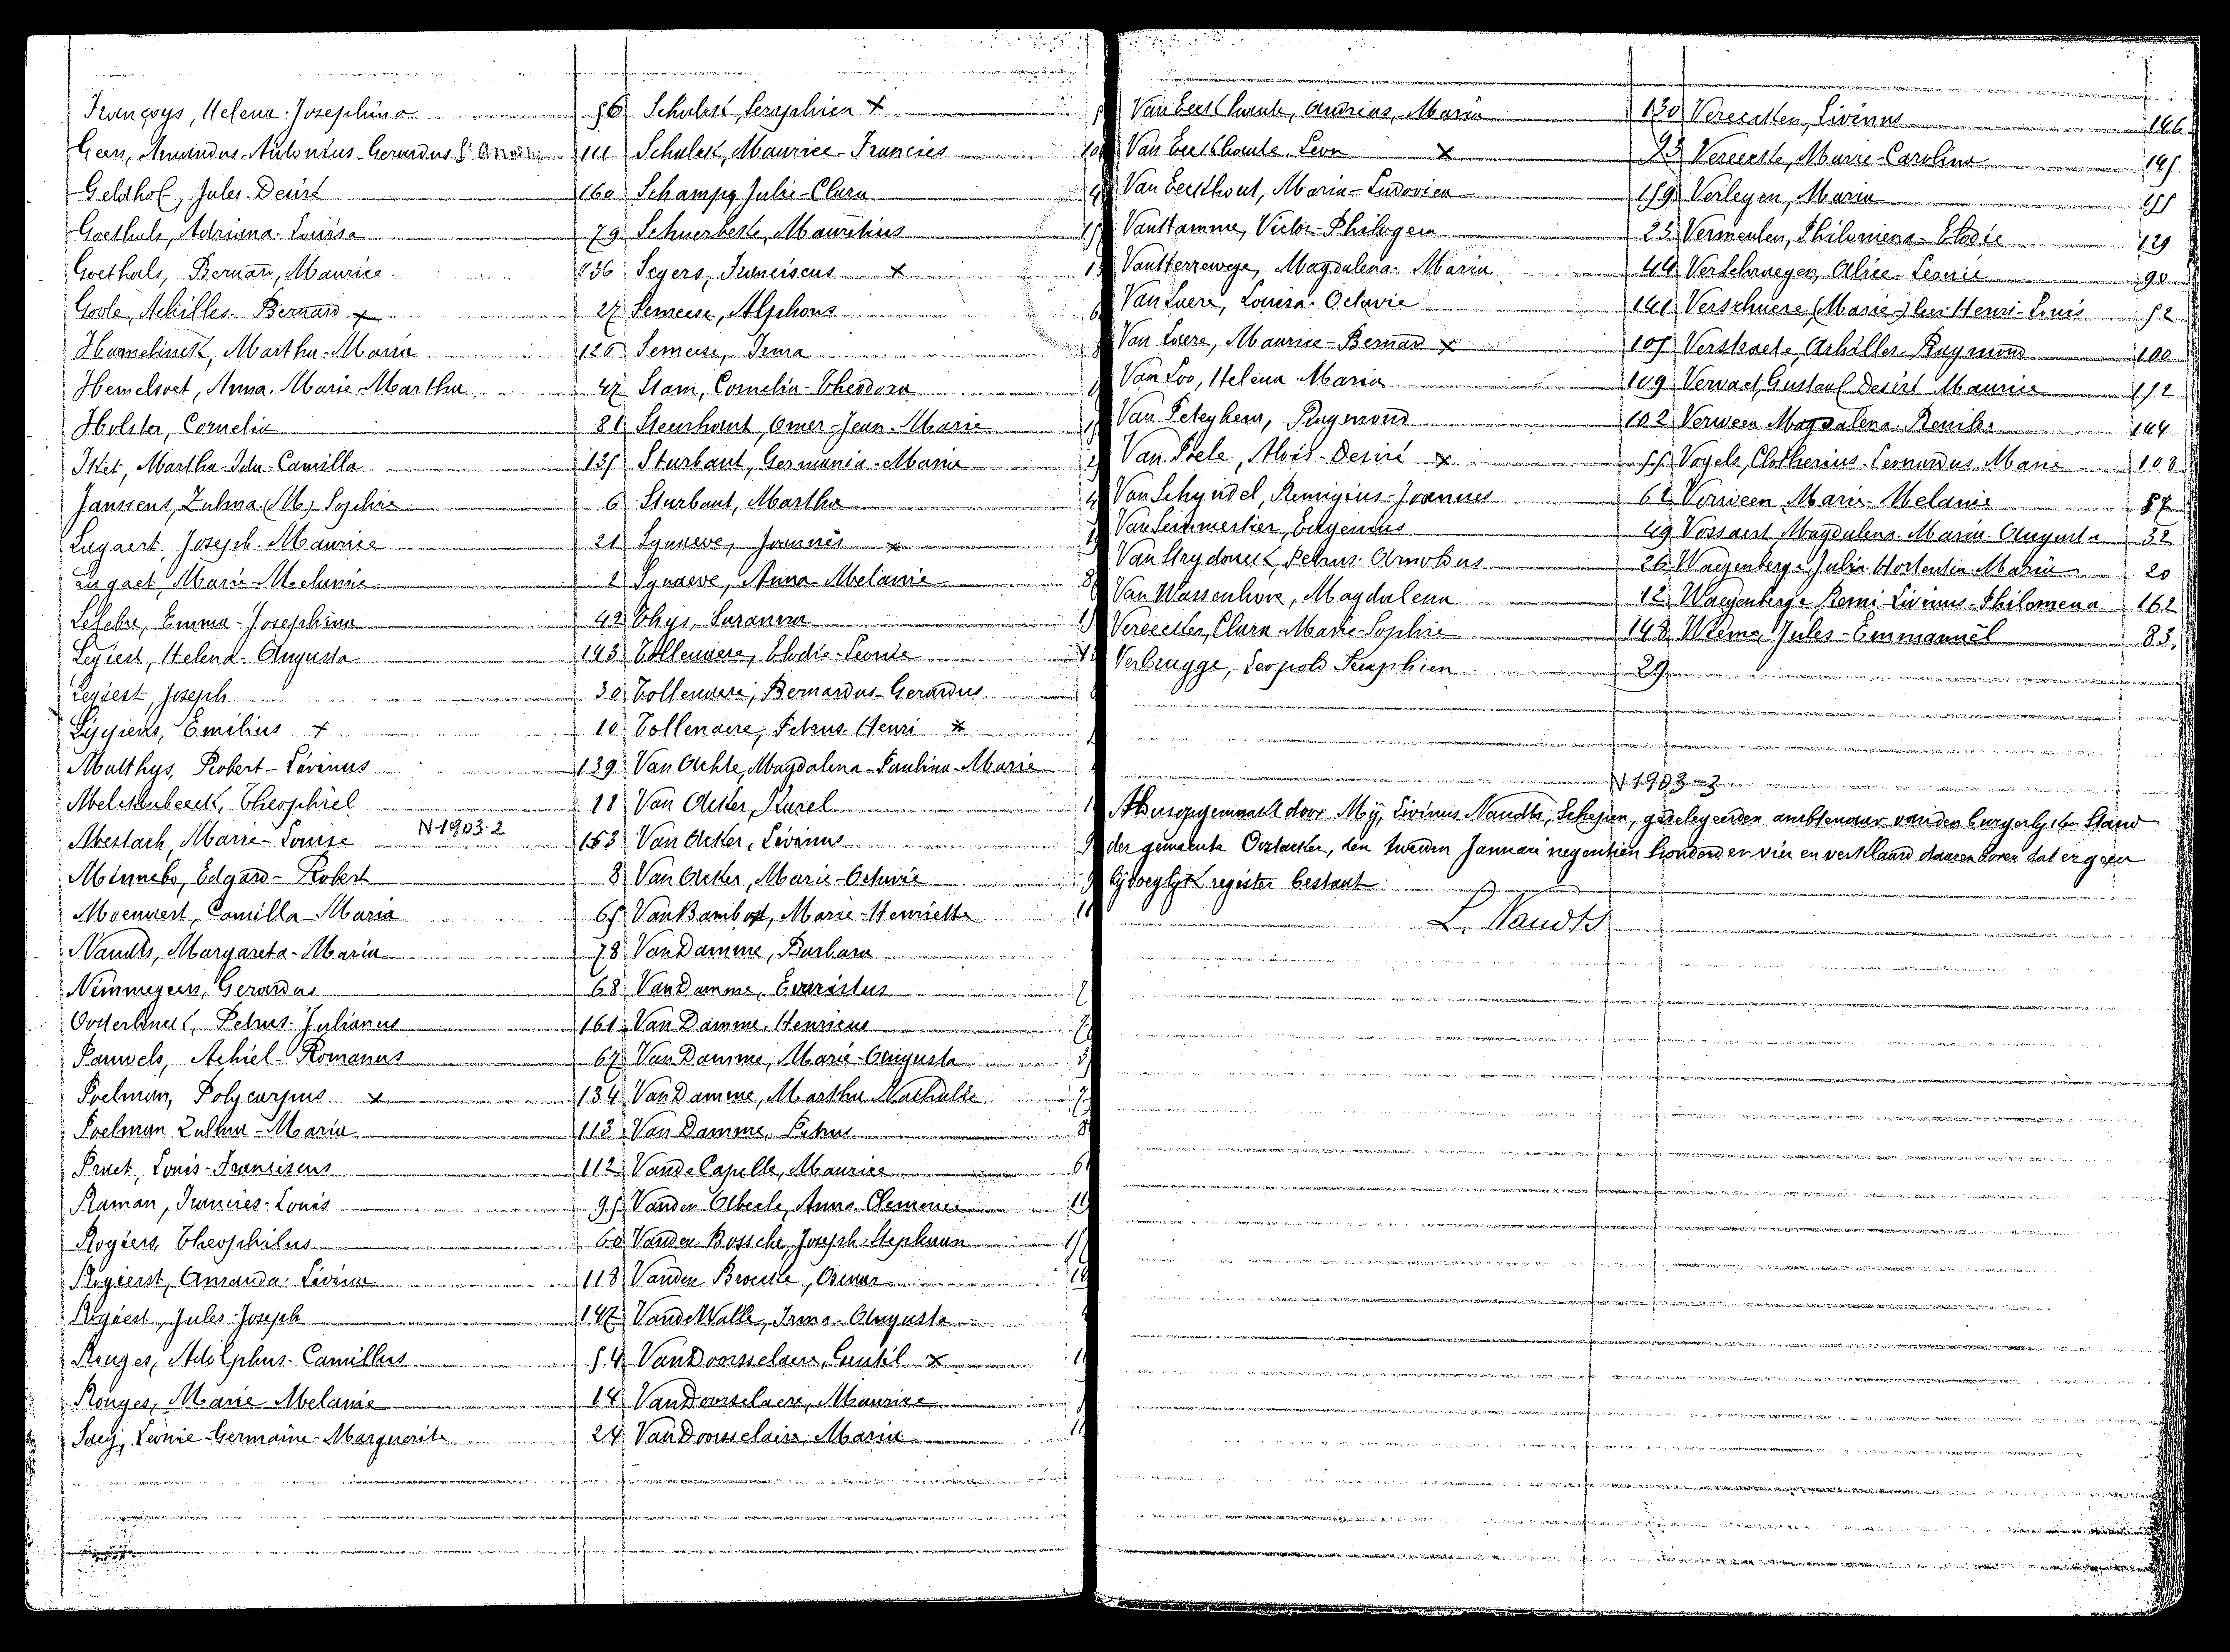 Françoys, Helena-Josephina 56
Geers, Armandus-Antonius-Gerardus 111
Geldhof, Jules-Desiré 160
Goethals, Adriana-Louisa 79
Goethals, Bernard, Maurice 136
Goole, Achilles-Bernard x 27
Hamelinck, Martha-Maria 126
Hemelsoet, Anna-Marie-Martha 47
Holster, Cornelia 81
Martha-Ida-Camilla 135
Janssens, Zulma (M) Sophie 6
Lagaert, Joseph-Maurice 21
Marie-Melanie 2
Lefebre, Emma-Josephina 42
Legiest, Helena-Augusta 143
Legiest, Joseph 30
Emilius x 10
Matthys, Robert-Livinus 139
Melkenbeeck, Theophiel 11
Mestach, Marie-Louise 153
N-1903-2
Minnebo, Edgard-Robert 8
Moenaert, Camilla-Maria 65
Naudts, Margareta-Maria 78
Nimmegeers, Gerardus 68
Oosterlinck, Petrus-Julianus 161
Pauwels, Achiel-Romanus 67
Poelman, Polycarpus x 134
Poelman Zulma-Maria 113
Praet, Louis-Franciscus 112
Raman, Francies-Louis 95
Rogiers, Theophilus 60
Rogierst, Amanda-Livina 118
Rogiest, Jules-Joseph 147
Rouges, Adolphus-Camillus 54
Rouges, Marie Melanie 14
Saey, Leonie-Germaine-Marguerite 24
Schalck, Seraphien x
Schalck, Maurice-Francies
Schamp, Julie-Clara
Schuerbeke, Mauritius
Segers, Franciscus x
Semeese, Alphons
Semeese, Irma
Stam, Cornelia-Theodora
Steenhaut, Omer-Jean-Marie
Sturbaut, Germania-Maria
Sturbaut, Martha
Synaeve, Joannes x
Synaeve, Anna Melanie
Thys, Suzanna
Tollenaere, Elodie-Leonie
Tollenaere, Bernardus-Gerardus
Tollenaere, Petrus-Henri x
Van Achte, Magdalena-Paulina-Marie
Van Acker, Karel
Van Acker, Livinus
Van Acker, Marie-Octavie
Van Bambost, Marie-Henriette
Van Damme, Barbara
Van Damme, Evaristus
Van Damme, Henricus
Van Damme, Marie-Augusta
Van Damme, Martha Nathalie
Van Damme, Petrus
Van de Capelle, Maurice
Vanden Abeele, Anna-Clemence
Vanden Bossche, Joseph-Stephaan
Vanden Broucke, Osmar
Van de Walle, Irma-Augusta
Van Doorselaere, Gentil x
Van Doorselaere, Maurice
Van Doorselaere, Maria
Van Eeckhaute, Andreas, Maria 130
Van Eeckhaute, Leon x 93
Van Eeckhout, Maria-Ludovica 159
Van Hamme, Victor-Philogen 23
Van Herrewege, Magdalena-Maria 44
Van Laere, Louisa-Octavie 141
Van Laere, Maurice-Bernard x 105
Van Loo, Helena-Maria 109
Van Peteghem, Raymond 102
Van Poele, Aloïs-Desiré x 55
Van Schyndel, Remigius-Joannes 61
Van Semmertier, Eugenius 49
Van Strydonck, Petrus-Arnoldus 26
Van Wassenhove, Magdalena 12
Vereecken, Clara-Marie-Sophie 148
Verbrugge, Leopold Seraphien 29
Vereecken, Livinus 146
Vereecke, Marie-Carolina 145
Verleyen, Maria 155
Vermeulen, Philomena-Elodie 129
Verschraegen, Alice-Leonie 90
Verschuere (Marie-) Henri-Louis 52
Verstraete, Achilles-Raymond 100
Vervaet, Gustaaf Desiré Maurice 152
Verween Magdalena-Renilde 144
Vogels, Clotherius-Leonardus Marie 108
Verween, Marie-Melanie 57
Vossaert Magdalena-Maria-Augusta 32
Waeyenberge, Julia-Hortentia-Maria 20
Waeyenberge Remi-Livinus-Philomena 162
Wieme, Jules-Emmanuël 83
N 1903-3
Aldus opgemaakt door Mij, Livinus Naudts, Schepen, gedelegeerden ambtenaar van den burgerlyken Stand
der gemeente Oostacker, den tweeden Januari negentien honderd en vier en verklaard daarenboven dat er geen
bijvoeglyk register bestaat.
L. Naudts